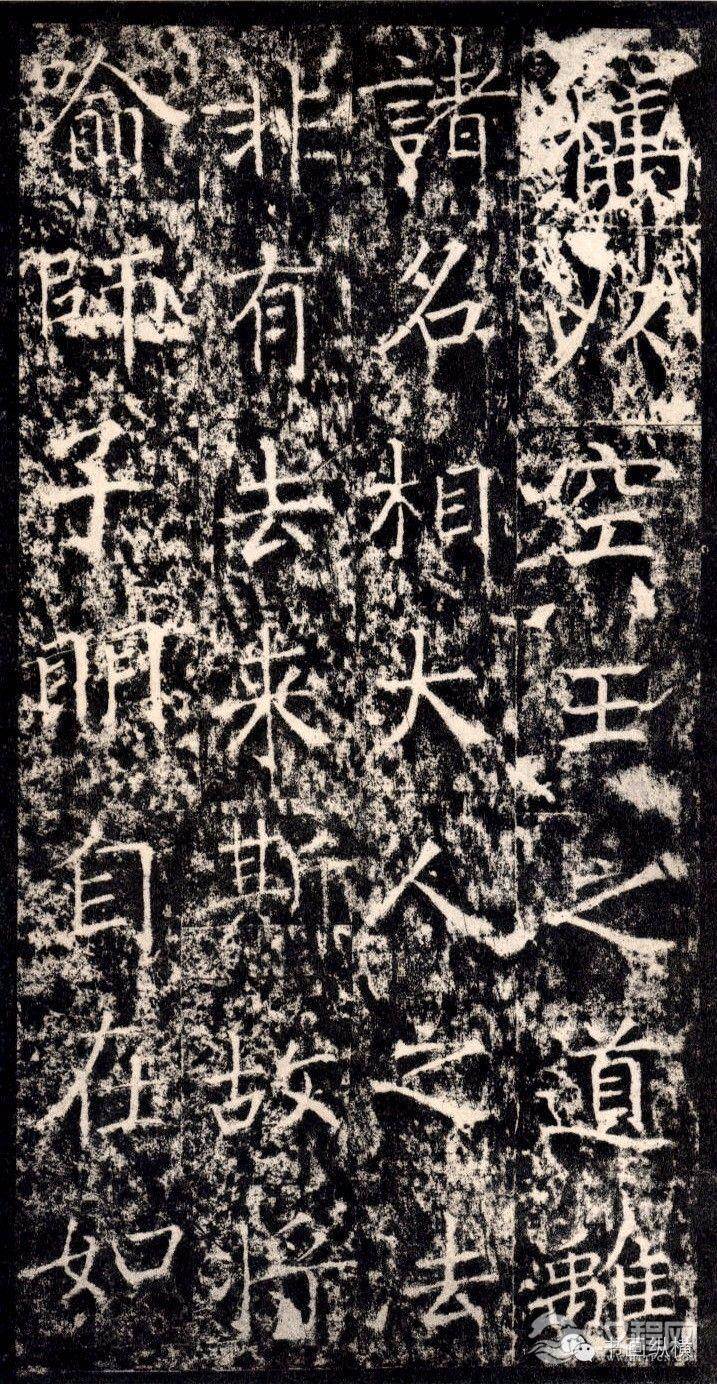 竊以空王之道離
諸名相大人之去
非有去來斯故將
喻師子明自在如
书画纵横